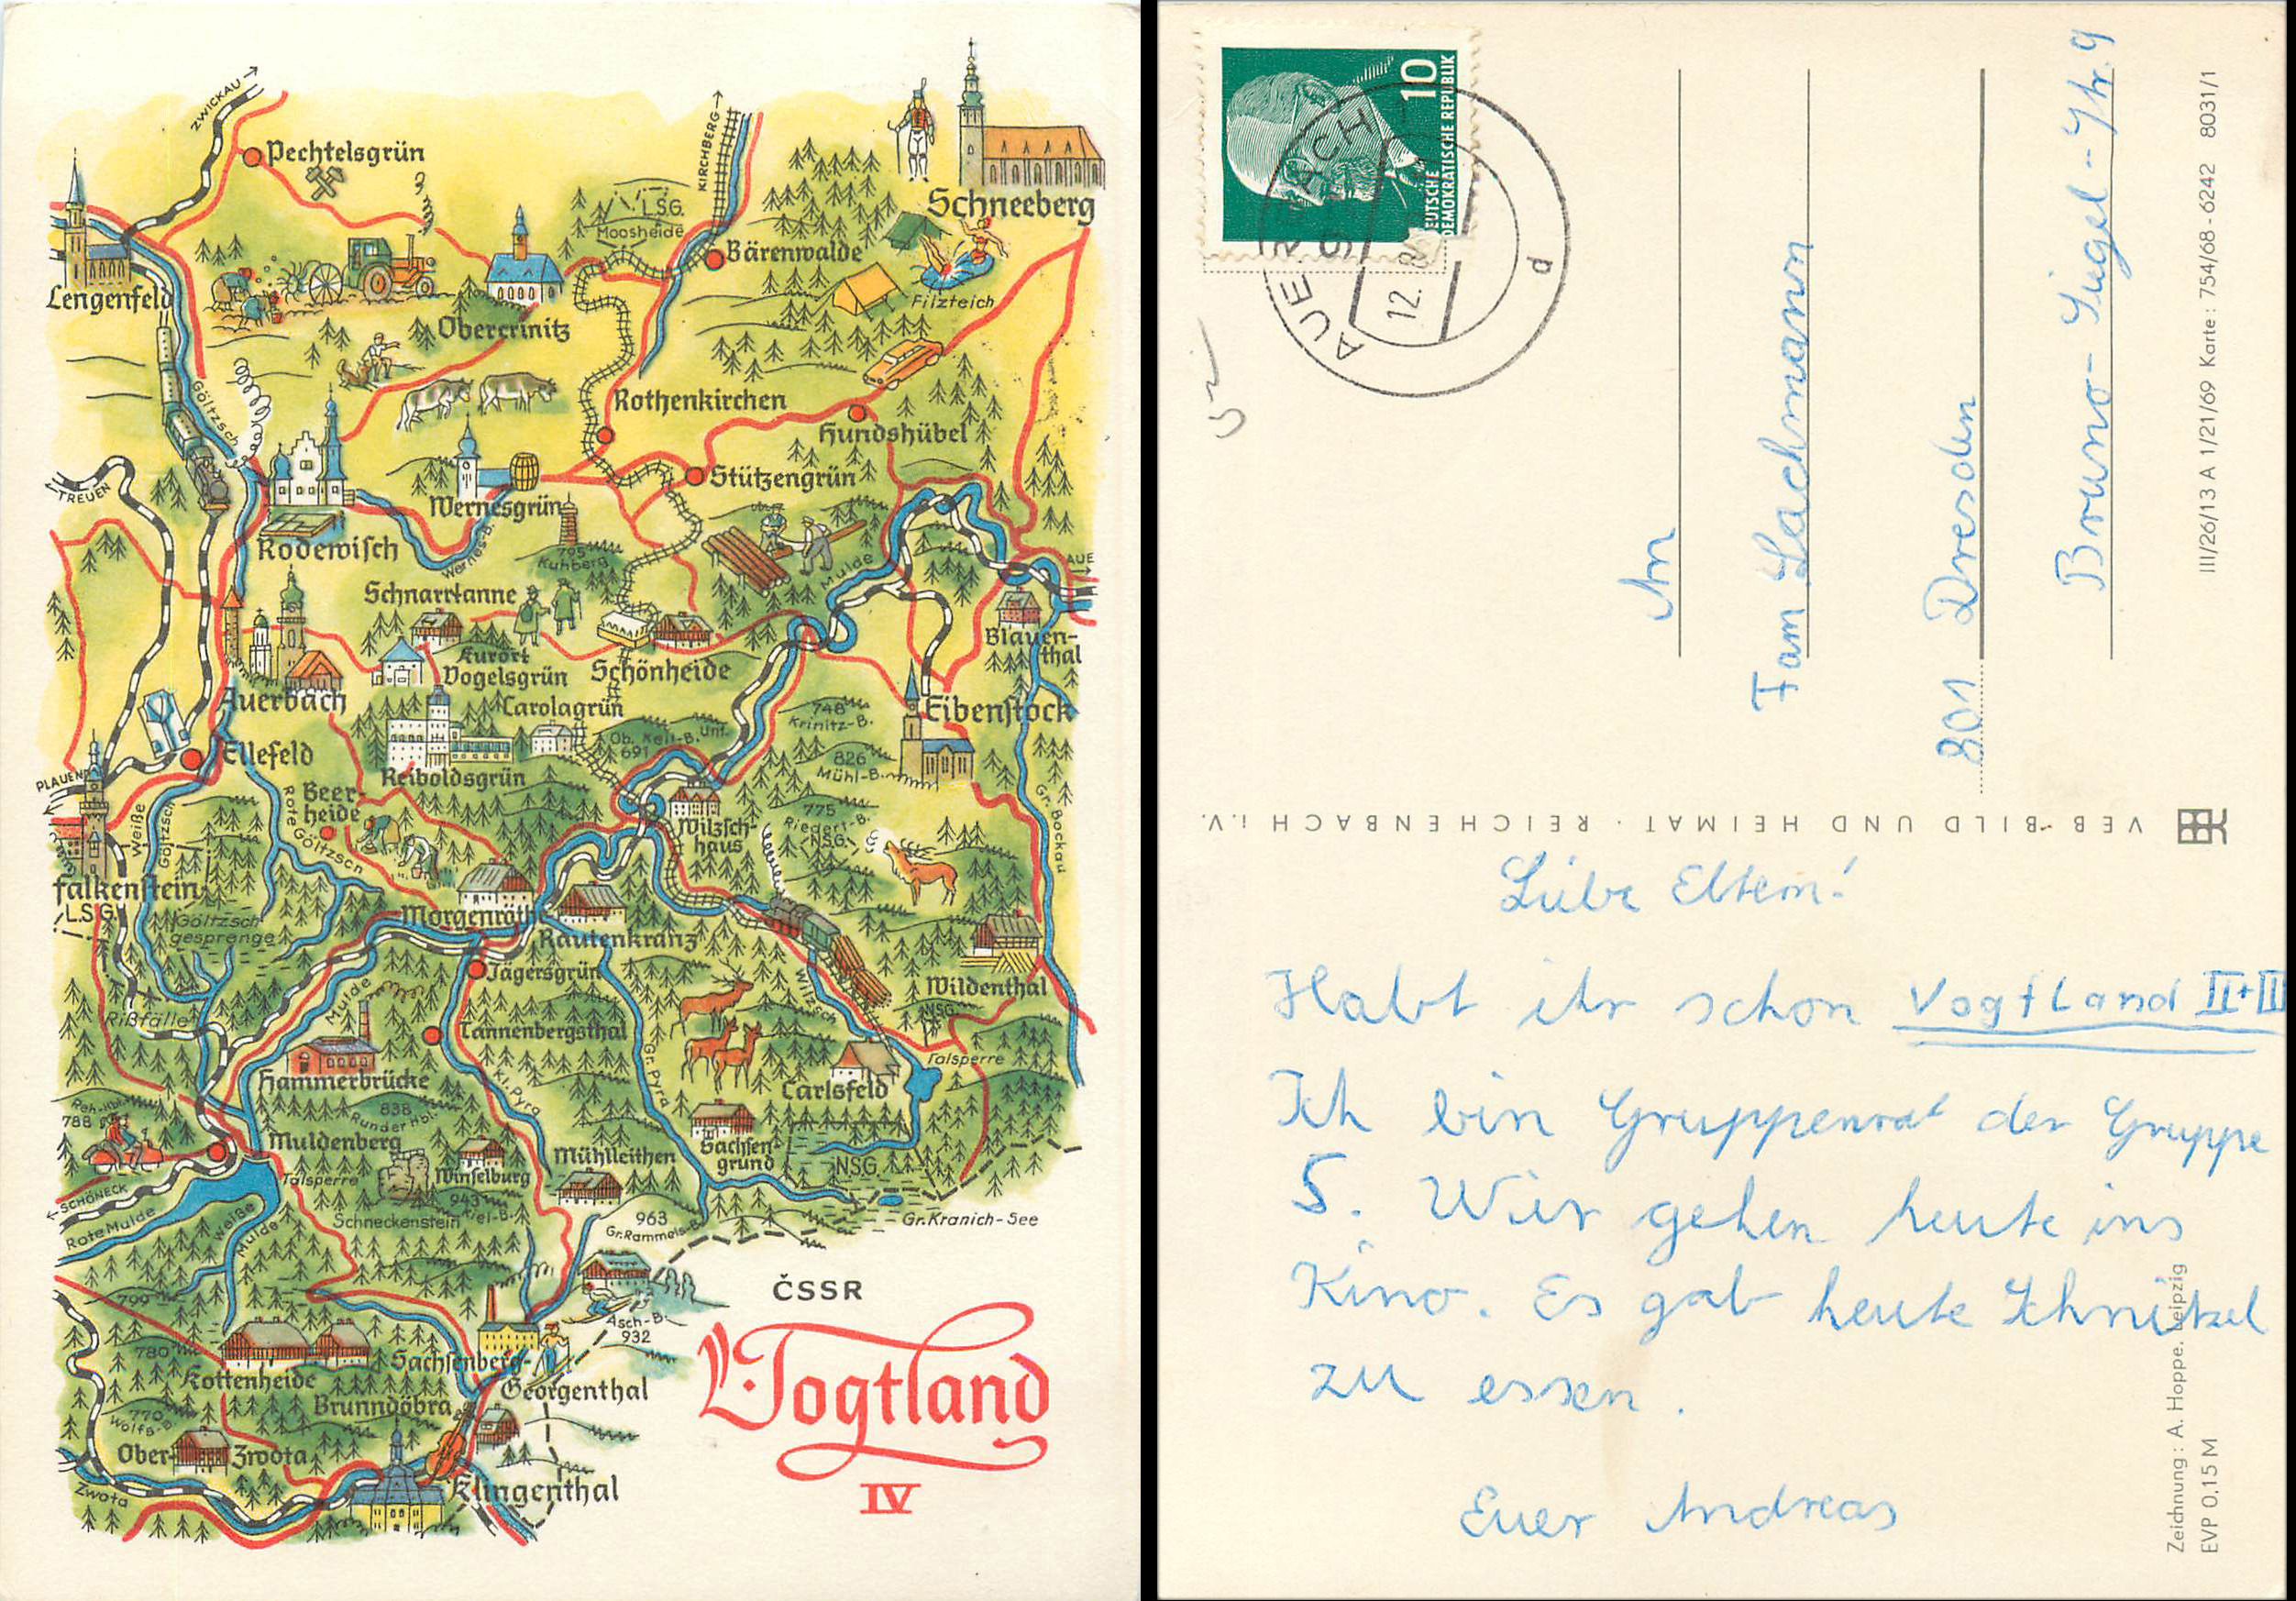 ZWICKAU
Pechtelsgrün
KIRCHBERG
Schneeberg
L.S.G.
Moosheide
Bärenwalde
Filzteich
Lengenfeld
Obercrinitz
Göltzsch
Rothenkirchen
Hundshübel
Stützengrün
TREUEN
Wernesgrün
Rodewisch
Wernes-B.
795
Kuhberg
Mulde
AUE
Schnarrtanne
Blauen-
thal
Kurort
Vogelsgrün
Schönheide
Auerbach
Carolagrün
Eibenstock
748
Krinitz-B.
Ob.
Unt.
691
826
Mühl-B.
Ellefeld
Reiboldsgrün
PLAUEN
Beer-
heide
Weiße
Göltzsch
Rote
Göltzsch
Wilzsch-
haus
775
NSG.
Gr. Bockau
Falkenstein
L.S.G.
Morgenröthe
Rautenkranz
Göltzsch
gesprenge
Jägersgrün
Wildenthal
Mulde
Wilzsch
NSG.
Rißfälle
Tannenbergsthal
Talsperre
Hammerbrücke
Carlsfeld
Kl. Pyra
Gr. Pyra
788
838
Runder Hbl.
Muldenberg
Mühlleithen
Sachsen-
grund
NSG.
Winselburg
Talsperre
943
Kiel-B.
SCHÖNECK
Rote Mulde
Weiße
Mulde
Schneckenstein
963
Gr. Rammels-B.
Gr. Kranich-See
799
ČSSR
Asch-B.
932
780
Kottenheide
Sachsenberg-
Georgenthal
Brunndöbra
770
Wolfs-B.
Ober-Zwota
Zwota
Klingenthal
Vogtland
IV
10
DEUTSCHE
DEMOKRATISCHE REPUBLIK
AUERBACH
12.
d
An
Fam Lachmann
801 Dresden
Bruno-Siegel-Str. 9
III/26/13 A 1/21/69 Karte: 754/68 - 6242 8031/1
VEB BILD UND HEIMAT · REICHENBACH i.V.
Liebe Eltern!
Habt ihr schon Vogtland II+III
Ich bin Gruppenrat der Gruppe
5. Wir gehen heute ins
Kino. Es gab heute Schnitzel
zu essen.
Euer Andreas
Zeichnung: A. Hoppe, Leipzig
EVP 0,15 M